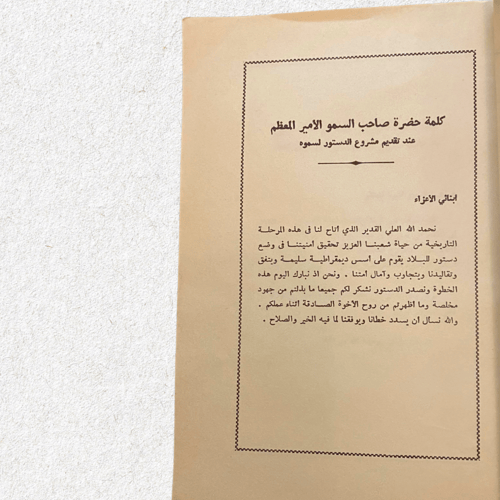 كلمة حضرة صاحب السمو الأمير المعظم
عند تقديم مشروع الدستور لسموه
ابنائي الأعزاء
نحمد الله العلي القدير الذي اتاح لنا في هذه المرحلة
التاريخية من حياة شعبنا العزيز تحقيق أمنيتنا في وضع
دستور للبلاد يقوم على أسس ديمقراطية سليمة ويتفق
وتقاليدنا ويتجاوب وآمال أمتنا . ونحن اذ نبارك اليوم هذه
الخطوة ونصدر الدستور نشكر لكم جميعا ما بذلتم من جهود
مخلصة وما أظهرتم من روح الأخوة الصادقة أثناء عملكم .
والله نسأل ان يسدد خطانا ويوفقنا لما فيه الخير والصلاح .